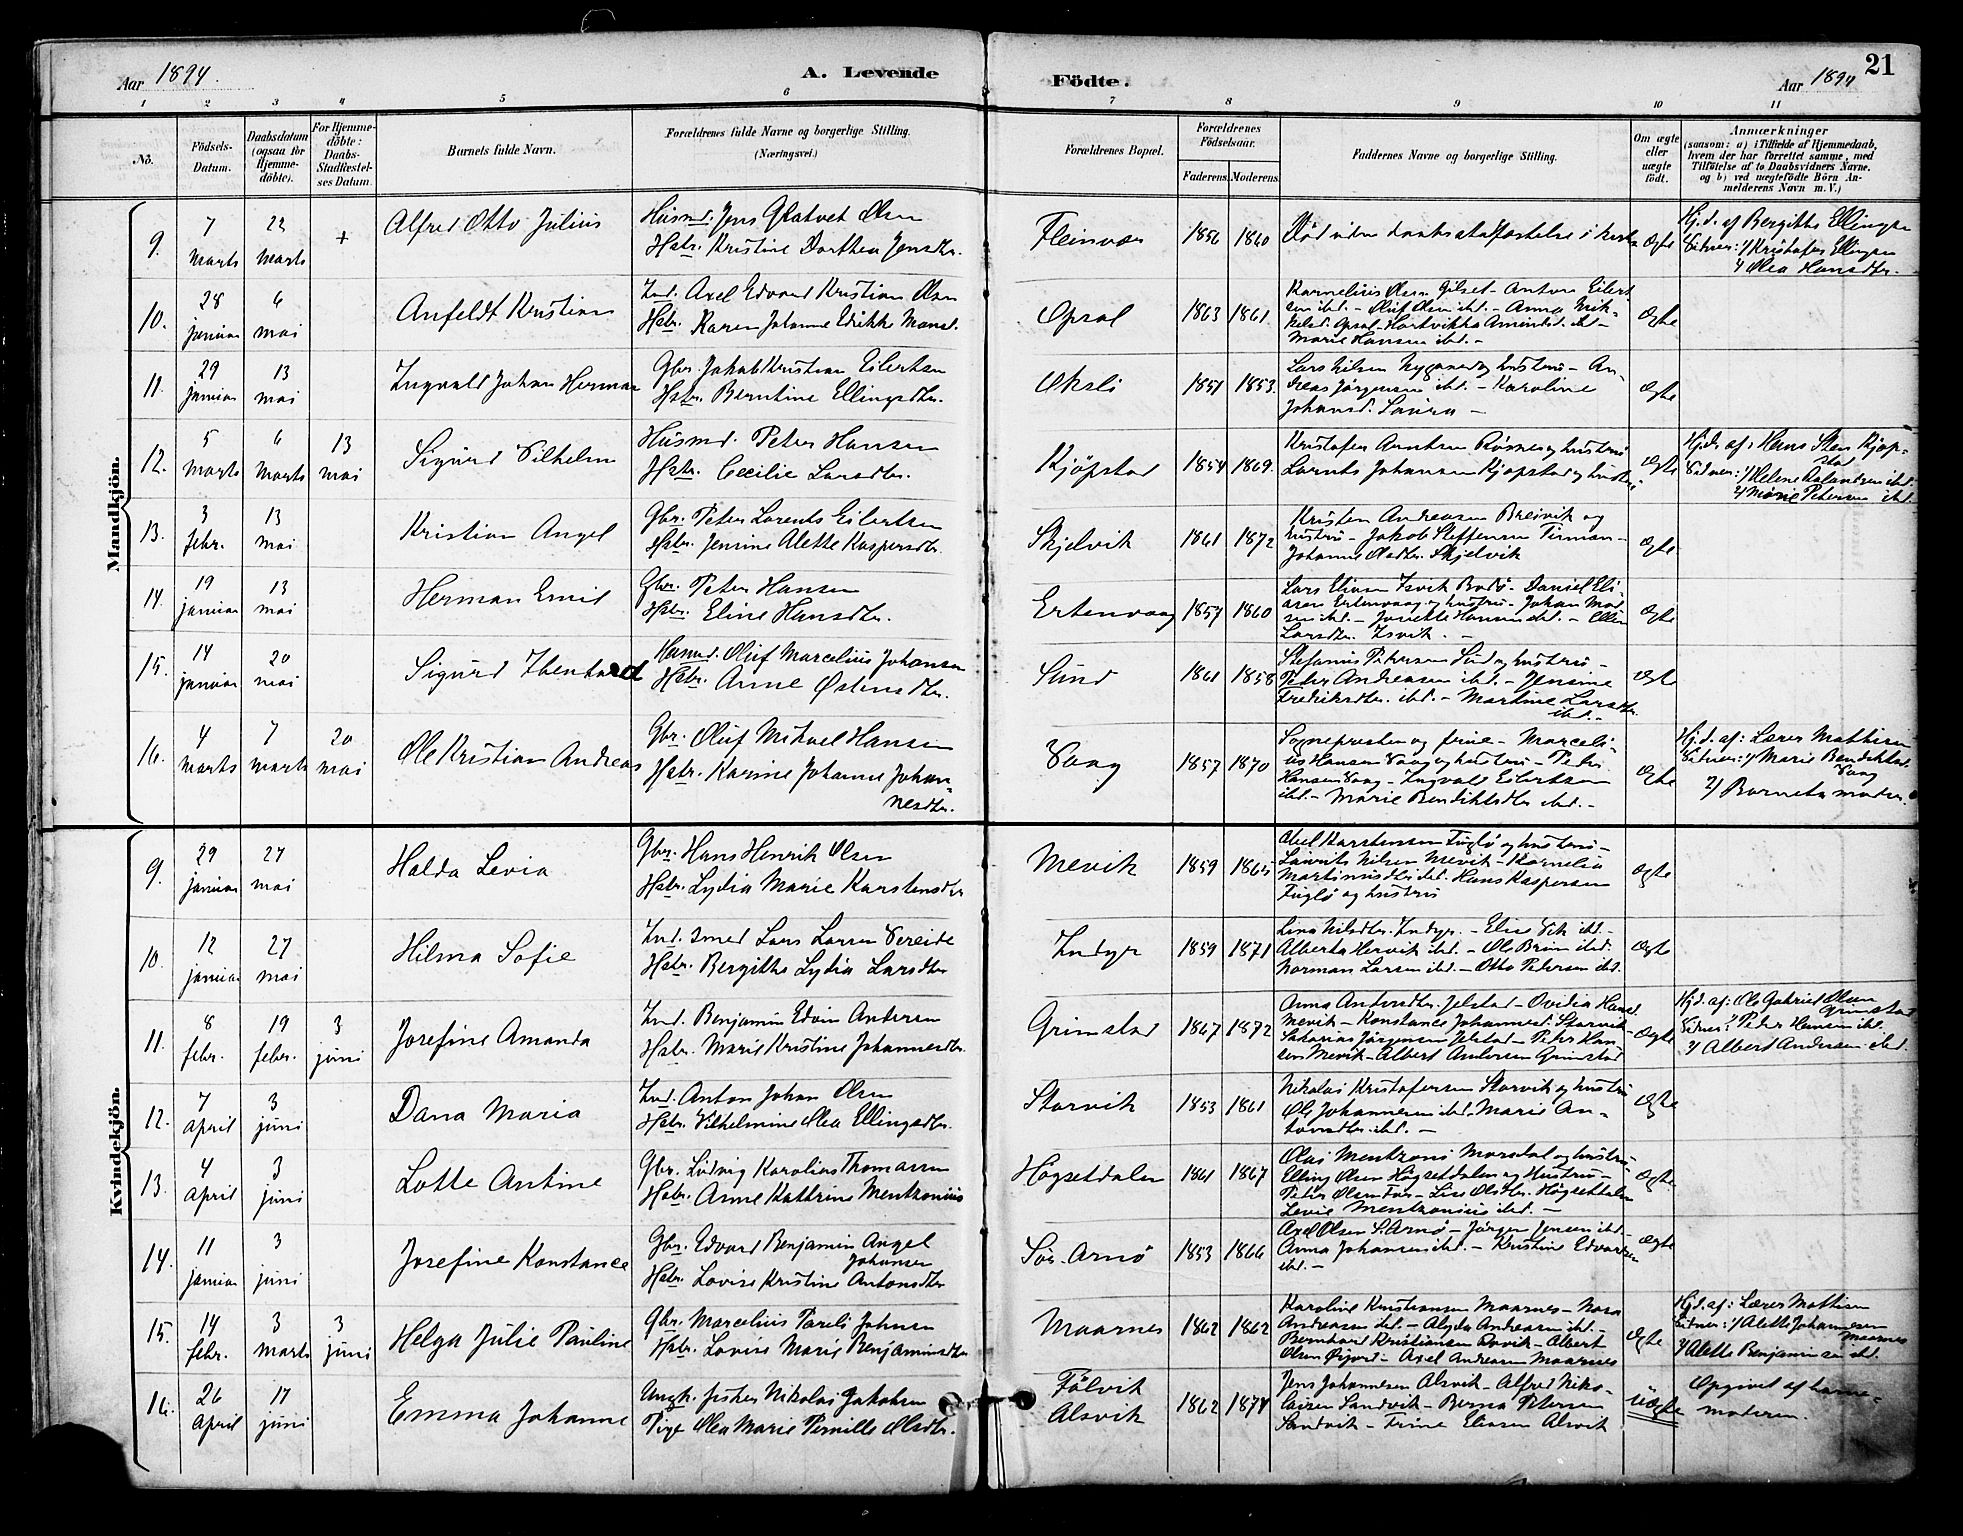 21
Aar 1894.
A. Levende
Födte.
Aar 1894
1 2 3 4 5 6 7 8 9 10 11
No.
Födsels-Datum.
Daabsdatum (ogsaa for Hjemme-döbte).
For Hjemme-döbte: Daabs-Stadfæstel-ses Datum.
Barnets fulde Navn.
Forældrenes fulde Navne og borgerlige Stilling. (Næringsvei.)
Forældrenes Bopæl.
Forældrenes Födselsaar.
Faderens. Moderens.
Faddernes Navne og borgerlige Stilling.
Om ægte eller uægte født.
Anmærkninger
(saasom: a) i Tilfælde af Hjemmedaab, hvem der har forrettet samme, med Tilföielse af to Daabsvidners Navne. og b) ved uægtefödte Börn An-melderens Navn m. V.)
Mandkjön.
9. 7 marts 22 marts + Alfred Otto Julius
Husmd. Jens Olsen
Hstr. Kristine Dorthea Jensdtr.
Fleinvær 1856 1860 Død uden daabsstadfæstelse i kirke ægte
Hj.d. af Bergitte Ellingsen
Vidner: 1/ Kristofer Ellingsen
2/ Olea Hansdtr.
10. 28 januar 6 mai Anfeldt Kristian
Ind. Axel Edvard Kristian Olsen
Hstr. Karen Johanne Edrikke Monsd.
Opsal 1863 1861
Kornelius Olsen Gilset - Anton Eilert-
sen ibd. - Oluf Olsen ibd. - Anna Mik-
kelsd. Opsal - Hartvikka Amundsd. ibd -
Marie Hansen ibd. -
ægte
11. 29 januar 13 mai Ingvald Johan Herman
Gbr. Jakob Kristian Eilertsen
Hstr. Berntine Ellingsdtr.
Oksli 1851 1853
Lars Nilsen Nygaard og hustru - An-
dreas Jørgensen ibd. - Karoline
Johansd. Saura -
ægte
12. 5 marts 6 marts 13 mai Sigurd Vilhelm
Husmd. Peter Hansen
Hstr. Cecilie Larsdtr.
Kjöpstad 1854 1869.
Kristofer Arntsen Røsnes og hustru
Lorents Johansen Kjøpstad og hustru
ægte
Hjd. af: Hans Sten Kjøp-
stad
Vidner: 1/ Helene ibd.
2/ Marie Petersen ibd.
13. 3 febr. 13 mai Kristian Angel
Gbr. Peter Lorents Eilertsen
Hstr. Jensine Alette Kaspersdtr.
Skjelvik 1861 1872
Kristen Andreasen Breivik og
hustru - Jakob Steffensen Finman -
Johanne Olsdtr. Skjelvik
ægte
14. 19 januar 13 mai Herman Emil
Gbr. Peter Hansen
Hstr. Eline Hansdtr.
Ertenvaag 1857 1860
Lars Eliasen Isvik Bodø - Daniel Eli-
asen Ertenvaag og hustru - Johan Mad-
sen ibd. - Hansen ibd. - Ellen
Larsdtr. Isvik. -
ægte
15. 14 januar 20 mai Sigurd Ibenhard
Husmd. Oluf Marcelius Johansen
Hstr. Anne Østensdtr.
Sund 1861 1858
Stefanus Petersen Sund og hustru -
Peter Andreasen ibd. - Jensine
Fredriksdtr. ibd. - Martine Larsdtr.
ibd. -
ægte
16. 4 marts 7 marts 20 mai Ole Kristian Andreas
Gbr. Oluf Mikael Hansen
Hstr. Karine Johanne Johan-
nesdtr.
Vaag 1857 1870
Sognepresten og frue - Marceli-
us Hansen Vaag og hustru - Peder
Hansen Vaag - Ingvald Eilertsen
ibd. - Marie Bendiktsdtr ibd. -
ægte
Hj.d. af: Lærer Mathisen
Vidner: 1/ Marie Bendiktsd.
Vaag
2/ Barnets moder.
Kvindekjön.
9. 29 januar 27 mai Halda Levia
Gbr. Hans Henrik Olsen
Hstr. Lydia Marie Karstensdtr
Mevik 1859 1865
Karstensen Fuglø og hustru -
Laurits Nilsen Mevik - Kornelia
Martinusd. ibd. Hans Kaspersen
Fuglø og hustru
ægte
10. 12 januar 27 mai Hilma Sofie
Ind. Smed Lars Larsen Vereide
Hstr. Bergitte Lydia Larsdtr
Indyr 1859 1871
Lina Nilsdtr. Indyr. - Elise Vik ibd. -
Alberta Hervik ibd. - Ole Bruun ibd.
Norman Larsen ibd. - Otto Pedersen ibd.
ægte
11. 8 febr. 19 febr. 3 juni Josefine Amanda
Ind. Benjamin Edvin Andersen
Hstr. Marie Kristine Johannesdtr.
Grimstad 1867 1872
Anna Andersdtr. Jelstad - Ovidia Hansd.
Mevik - Konstance Johannesd. Storvik -
Jørgensen Jelstad - Peter Han-
sen Mevik - Albert Andersen Grimstad
ægte
Hjd. af: Ole Gabriel Olsen
Grimstad
Vidner: 1/ Peter Hansen ibd.
2/ Albert Andersen ibd.
12. 7 april 3 juni Dana Maria
Ind. Anton Johan Olsen
Hstr. Vilhelmine Olea Ellingsdtr.
Storvik 1853 1861
Nikolai Kristofersen Storvik og hustru
Ole Johannesen ibd. - Marie An-
tonsdtr. ibd. -
ægte
13. 4 april 3 juni Lotte Antine
Gbr. Ludvig Karolius Thomassen
Hstr. Anne Kathrine Mentzonius
Høgsetdalen 1861 1867
Olai Mentzoni Morsdal og hustru -
Elling Olsen Høgsetdalen og Hustru -
Peter Olsen - Lise Olsdtr. Høgsetdalen
Levie Mentzonius ibd. -
ægte
14. 11 januar 3 juni Josefine Konstance
Gbr. Edvard Benjamin Angel
Johansen
Hstr. Lovise Kristine Antonsdtr
Sör-Arnö 1853 1866
Axel Olsen S. Arnø - Jörgen Jensen ibd. -
Anna Johansen ibd. - Kristine Edvardsen
ibd. -
ægte
15. 14 febr. 3 marts 3 juni Helga Julie Pauline
Gbr. Marcelius Pareli Johnsen
Hstr. Lovise Marie Benjaminsdtr
Maarnes 1862 1862
Karoline Kristiansen Maarnes - Nora
Andreasen ibd. - Alyda Andreasen ibd. -
Bernhard Kristiansen - Albert
Olsen - Axel Andreasen Maarnes
ægte
Hjd. af: Lærer Mathisen
Vidner: 1/ Alette Johannesen
Maarnes
2/ Alette Benjaminsen ibd.
16. 26 april 17 juni Emma Johanne
Ungk. fisker Nikolai Jakobsen
Pige Olea Marie Pernille Olsdtr.
Følvik
Alsvik
1862 1874
Jens Johannesen Alsvik - Alfred Niko-
laisen Sandvik - Berna Petersen
Sandvik - Trine Eliasen Alsvik
uægte
Opgivet af barne-
moderen.